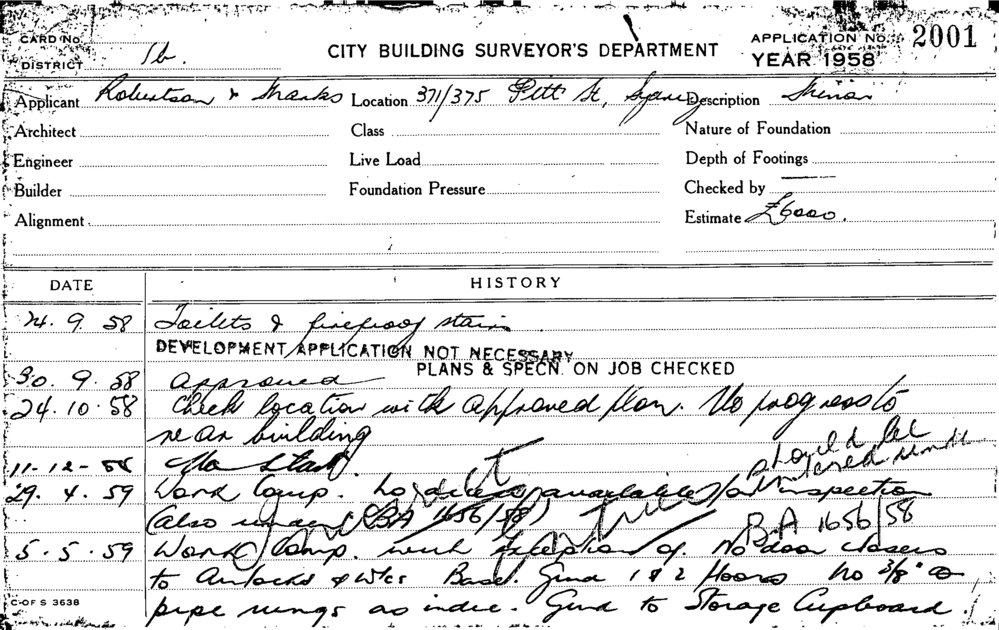 CARD No.
DISTRICT 1b.
CITY BUILDING SURVEYOR'S DEPARTMENT
APPLICATION No. 2001
YEAR 1958
Applicant Robertson & Marks Location 371/375 Pitt St, Sydney Description
Architect Class Nature of Foundation
Engineer Live Load Depth of Footings
Builder Foundation Pressure Checked by
Alignment Estimate £6000.
DATE HISTORY
24. 9. 58 Toilets & fireproof stairs
DEVELOPMENT APPLICATION NOT NECESSARY
PLANS & SPECN. ON JOB CHECKED
30. 9. 58 Approved
24. 10. 58 Check location with approved plan. No progress to
rear building
11-12-58 No start
should be
29. 4. 59 Work Comp. available for inspection
(also under (BA 1656/58) BA 1656/58
5. 5. 59 Work Comp. with exception of. No door closers
to Airlocks & W/cs Base. Grnd 1 & 2 floors No 3/8"
pipe rungs as indic. Grnd to Storage Cupboard.
C-OF S 3638